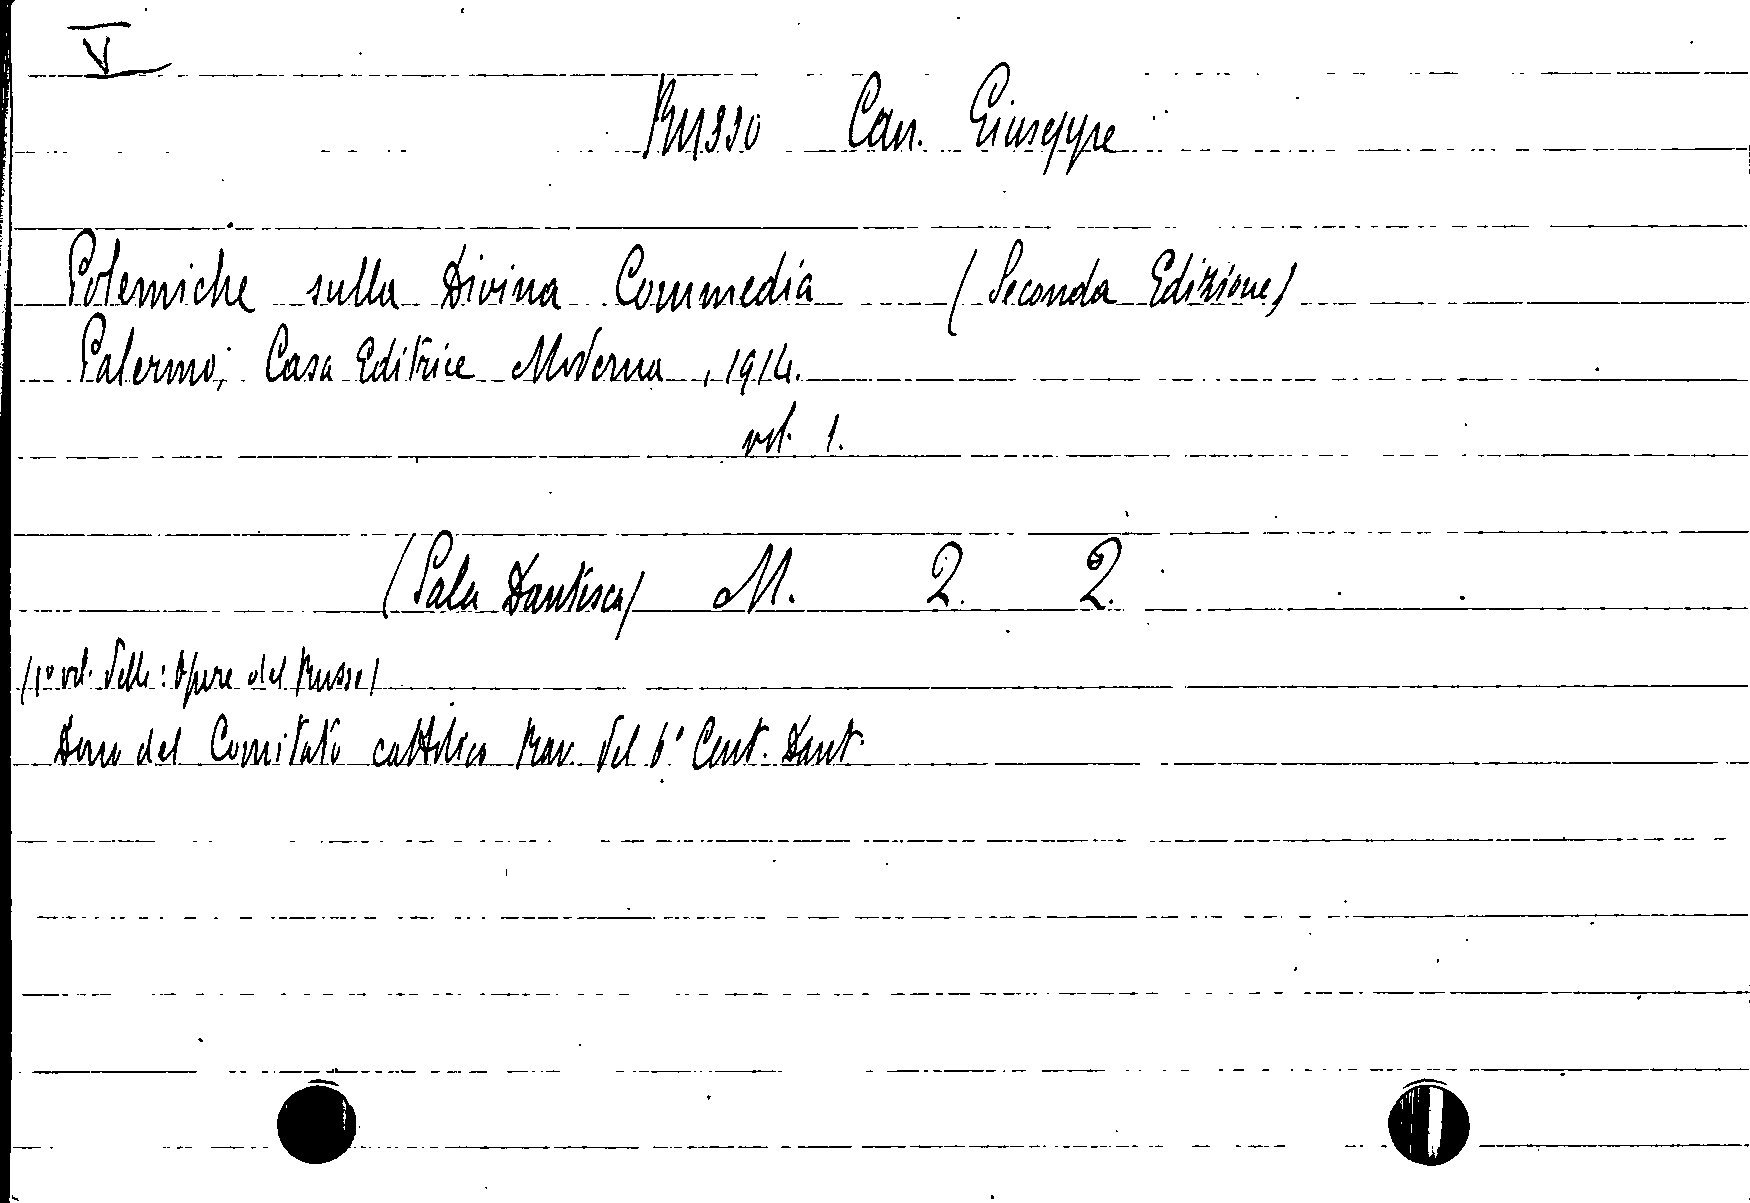 V
Russo Can. Giuseppe
Polemiche sulla Divina Commedia (Seconda Edizione)
Palermo, Casa Editrice Moderna, 1914.
vol. 1.
(Sala Dantesca) M. 2. 2.
(1° vol. delle: Opere del Russo)
Dono del Comitato cattolico Rav. del 6° Cent. Dant.